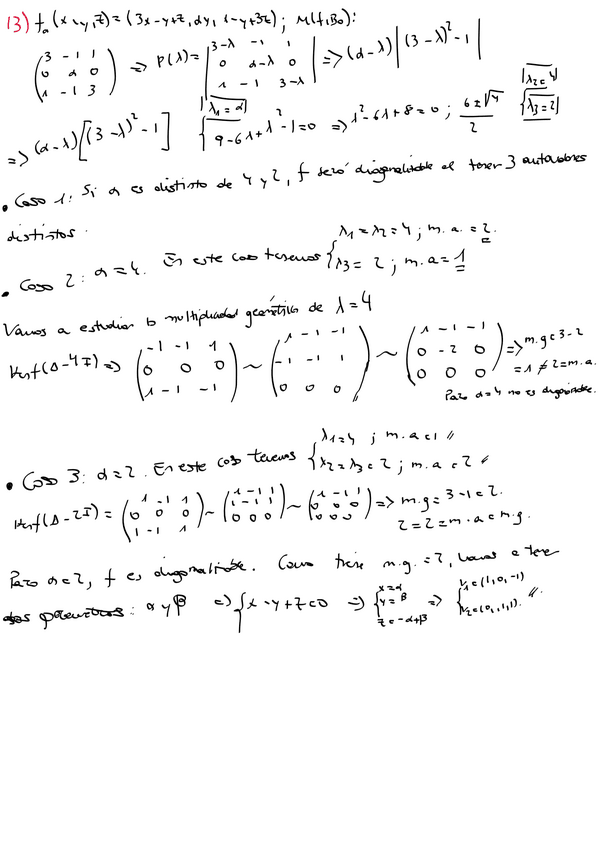 13) f_a(x,y,z)=(3x-y+z, αy, x-y+3z); M(f,B₀):
(3 -1 1 / 0 α 0 / 1 -1 3) => P(λ)= |3-λ -1 1 / 0 α-λ 0 / 1 -1 3-λ| => (α-λ) |(3-λ)²-1|
=> (α-λ)[(3-λ)²-1] { λ₁=α / 9-6λ+λ²-1=0 => λ²-6λ+8=0; (6±√4)/2 { λ₂=4 / λ₃=2
• Caso 1: Si α es distinto de 4 y 2, f será diagonalizable al tener 3 autovalores
distintos.
• Caso 2: α=4. En este caso tenemos { λ₁=λ₂=4; m.a.=2. / λ₃=2; m.a=1
Vamos a estudiar la multiplicidad geométrica de λ=4
Kerf(A-4I) => (-1 -1 1 / 0 0 0 / 1 -1 -1) ~ (1 -1 -1 / -1 -1 1 / 0 0 0) ~ (1 -1 -1 / 0 -2 0 / 0 0 0) => m.g=3-2
=1≠2=m.a.
Para α=4 no es diagonalizable.
• Caso 3: α=2. En este caso tenemos { λ₁=4; m.a=1 // λ₂=λ₃=2; m.a=2 //
Kerf(A-2I) = (1 -1 1 / 0 0 0 / 1 -1 1) ~ (1 -1 1 / 1 -1 1 / 0 0 0) ~ (1 -1 1 / 0 0 0 / 0 0 0) => m.g=3-1=2.
2=2=m.a=m.g.
Para α=2, f es diagonalizable. Como tiene m.g.=2, vamos a tener
dos parámetros: α y β => { x-y+z=0 => { x=α / y=β / z=-α+β => { v₁=(1,0,-1) / v₂=(0,1,1). //